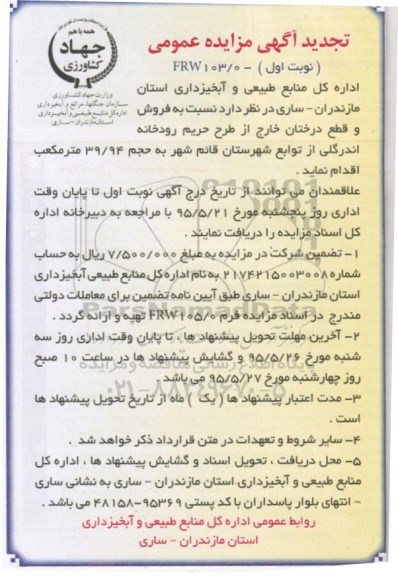 همه با هم
جهاد
کشاورزی
وزارت جهاد کشاورزی
سازمان جنگلها، مراتع و آبخیزداری
اداره کل منابع طبیعی و آبخیزداری
استان مازندران - ساری
تجدید آگهی مزایده عمومی
( نوبت اول ) - FRW۱۰۳/۰
اداره کل منابع طبیعی و آبخیزداری استان
مازندران - ساری در نظر دارد نسبت به فروش
و قطع درختان خارج از طرح حریم رودخانه
اندرگلی از توابع شهرستان قائم شهر به حجم ۳۹/۹۴ مترمکعب
اقدام نماید .
علاقمندان می توانند از تاریخ درج آگهی نوبت اول تا پایان وقت
اداری روز پنجشنبه مورخ ۹۵/۵/۲۱ با مراجعه به دبیرخانه اداره
کل اسناد مزایده را دریافت نمایند .
۱- تضمین شرکت در مزایده به مبلغ ۷/۵۰۰/۰۰۰ ریال به حساب
شماره ۲۱۷۴۲۱۵۰۰۳۰۰۸ به نام اداره کل منابع طبیعی آبخیزداری
استان مازندران - ساری طبق آیین نامه تضمین برای معاملات دولتی
مندرج در اسناد مزایده فرم FRW۱۰۵/۰ تهیه و ارائه گردد .
۲- آخرین مهلت تحویل پیشنهاد ها ، تا پایان وقت اداری روز سه
شنبه مورخ ۹۵/۵/۲۶ و گشایش پیشنهاد ها در ساعت ۱۰ صبح
روز چهارشنبه مورخ ۹۵/۵/۲۷ می باشد .
۳- مدت اعتبار پیشنهاد ها ( یک ) ماه از تاریخ تحویل پیشنهاد ها
است .
۴- سایر شروط و تعهدات در متن قرارداد ذکر خواهد شد .
۵- محل دریافت ، تحویل اسناد و گشایش پیشنهاد ها ، اداره کل
منابع طبیعی و آبخیزداری استان مازندران - ساری به نشانی ساری
- انتهای بلوار پاسداران با کد پستی ۹۵۳۶۹-۴۸۱۵۸ می باشد .
روابط عمومی اداره کل منابع طبیعی و آبخیزداری
استان مازندران - ساری